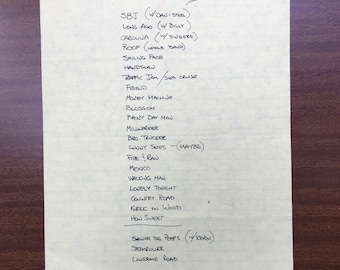 SBJ (w/ DAN-STEEL)
LONG AGO (w/ BILLY)
CAROLINA (w/ SINGERS)
ROOF (WHOLE BAND)
SAILING FACE
HANDYMAN
TRAFFIC JAM / SEA CRUISE
FRIEND
MONEY MACHINE
BLOSSOM
RAINY DAY MAN
MILLWORKER
BRO TRUCKER
SUNNY SKIES - (MAYBE)
FIRE & RAIN
MEXICO
WALKING MAN
LOVELY TONIGHT
COUNTRY ROAD
KNOCK ON WOOD
HOW SWEET
SHOWER THE PEEPS
STEAMROLLER
LONESOME ROAD